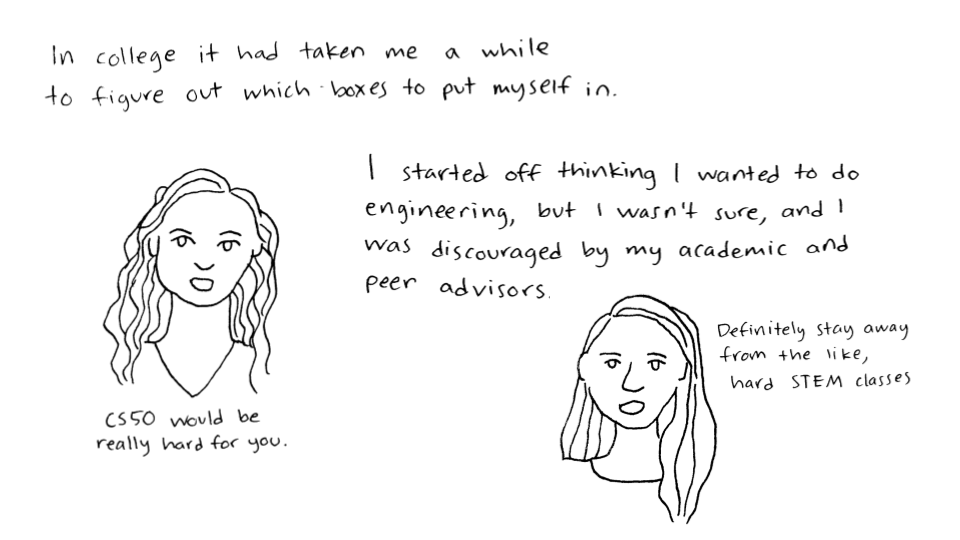 In college it had taken me a while
to figure out which boxes to put myself in.
I started off thinking I wanted to do
engineering, but I wasn't sure, and I
was discouraged by my academic and
peer advisors.
CS50 would be
really hard for you.
Definitely stay away
from the like,
hard STEM classes